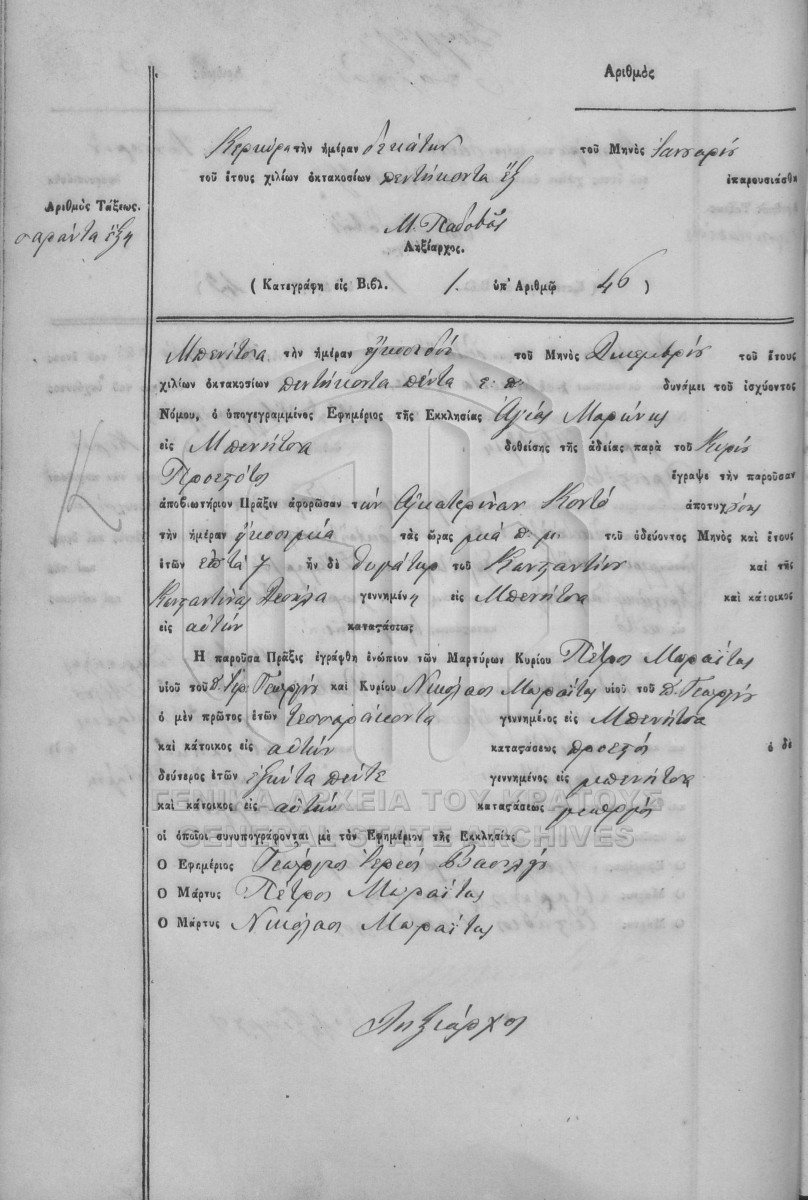 Ἀριθμὸς
Κερκύρᾳ τὴν ἡμέραν δεκάτην τοῦ Μηνὸς Ἰανουαρίου
τοῦ ἔτους χιλίων ὀκτακοσίων πεντήκοντα ἕξ ἐπαρουσιάσθη
Ἀριθμὸς Τάξεως.
σαράντα ἕξη
Μ. Παδοβᾶς
Ληξίαρχος.
( Κατεγράφη εἰς Βιβλ. 1. ὑπ' Ἀριθμῷ 46 )
Μπενίτσα τὴν ἡμέραν τοῦ Μηνὸς Δεκεμβρίου τοῦ ἔτους
χιλίων ὀκτακοσίων πεντήκοντα πέντε ε. π. δυνάμει τοῦ ἰσχύοντος
Νόμου, ὁ ὑπογεγραμμένος Ἐφημέριος τῆς Ἐκκλησίας Ἁγίας Μαρίνης
εἰς Μπενήτσα δοθείσης τῆς ἀδείας παρὰ τοῦ Κυρίου
Προεστότος ἔγραψε τὴν παροῦσαν
ἀποβιωτήριον Πρᾶξιν ἀφορῶσαν τὴν Αἰκατερίναν Κοντό ἀποτυχ
τὴν ἡμέραν ἠκοσιμία τὰς ὥρας μιά π. μ. τοῦ ὁδεύοντος Μηνὸς καὶ ἔτους
ἐτῶν ἑπτά 7 ἦν δὲ θυγάτηρ τοῦ Κωνσταντίνου καὶ τῆς
Κωνσταντίνας γεννημένη εἰς Μπενήτσα καὶ κάτοικος
εἰς αὐτήν καταςάσεως
Ἡ παροῦσα Πρᾶξις ἐγράφθη ἐνώπιον τῶν Μαρτύρων Κυρίου Πέτρος Μωραΐτας
υἱοῦ τοῦ Γεωργίου καὶ Κυρίου Νικόλαος Μωραΐτας υἱοῦ τοῦ π. Γεωργίου
ὁ μὲν πρῶτος ἐτῶν τεσσαράκοντα γεννημένος εἰς Μπενήτσα
καὶ κάτοικος εἰς αὐτήν καταςάσεως ὁ δὲ
δεύτερος ἐτῶν ἑξήντα πέντε γεννημένος εἰς μπενήτσα
καὶ κάτοικος εἰς αὐτήν καταςάσεως γεωργός
οἱ ὁποῖοι συνυπογράφονται μὲ τὸν Ἐφημέριον τῆς Ἐκκλησίας
Ὁ Ἐφημέριος Γεώργιος Ἱερεύς
Ὁ Μάρτυς Πέτρος Μωραΐτας
Ὁ Μάρτυς Νικόλαος Μωραΐτας
Ληξίαρχος
ΓΕΝΙΚΑ ΑΡΧΕΙΑ ΤΟΥ ΚΡΑΤΟΥΣ
GENERAL STATE ARCHIVES